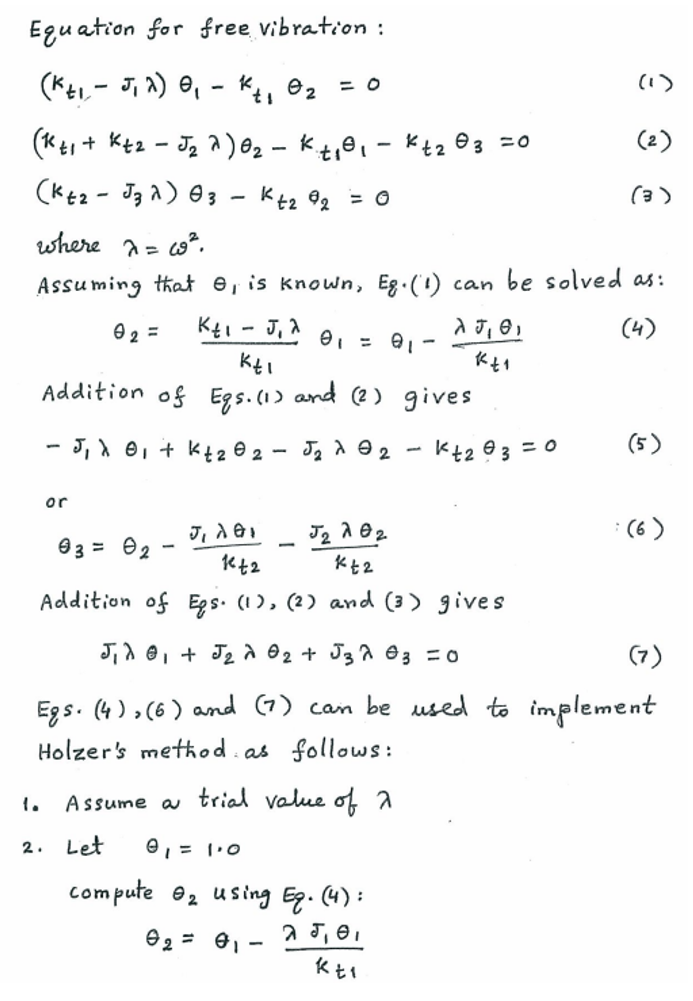 Equation for free vibration :
(K_t1 - J_1 λ) θ_1 - K_t1 θ_2 = 0 (1)
(K_t1 + K_t2 - J_2 λ) θ_2 - K_t1 θ_1 - K_t2 θ_3 = 0 (2)
(K_t2 - J_3 λ) θ_3 - K_t2 θ_2 = 0 (3)
where λ = ω².
Assuming that θ_1 is known, Eq. (1) can be solved as:
θ_2 = (K_t1 - J_1 λ)/K_t1 θ_1 = θ_1 - (λ J_1 θ_1)/K_t1 (4)
Addition of Eqs. (1) and (2) gives
- J_1 λ θ_1 + K_t2 θ_2 - J_2 λ θ_2 - K_t2 θ_3 = 0 (5)
or
θ_3 = θ_2 - (J_1 λ θ_1)/K_t2 - (J_2 λ θ_2)/K_t2 (6)
Addition of Eqs. (1), (2) and (3) gives
J_1 λ θ_1 + J_2 λ θ_2 + J_3 λ θ_3 = 0 (7)
Eqs. (4), (6) and (7) can be used to implement
Holzer's method as follows:
1. Assume a trial value of λ
2. Let θ_1 = 1.0
compute θ_2 using Eq. (4):
θ_2 = θ_1 - (λ J_1 θ_1)/K_t1